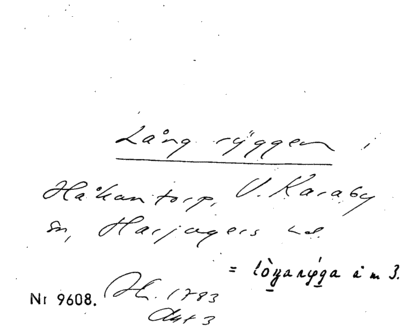 Lång ryggen i
Håkantorp, V. Karaby
sn, Harjagers hd
= lòŋarýga å m 3.
Nr 9608. Sk. 1783
Akt 3